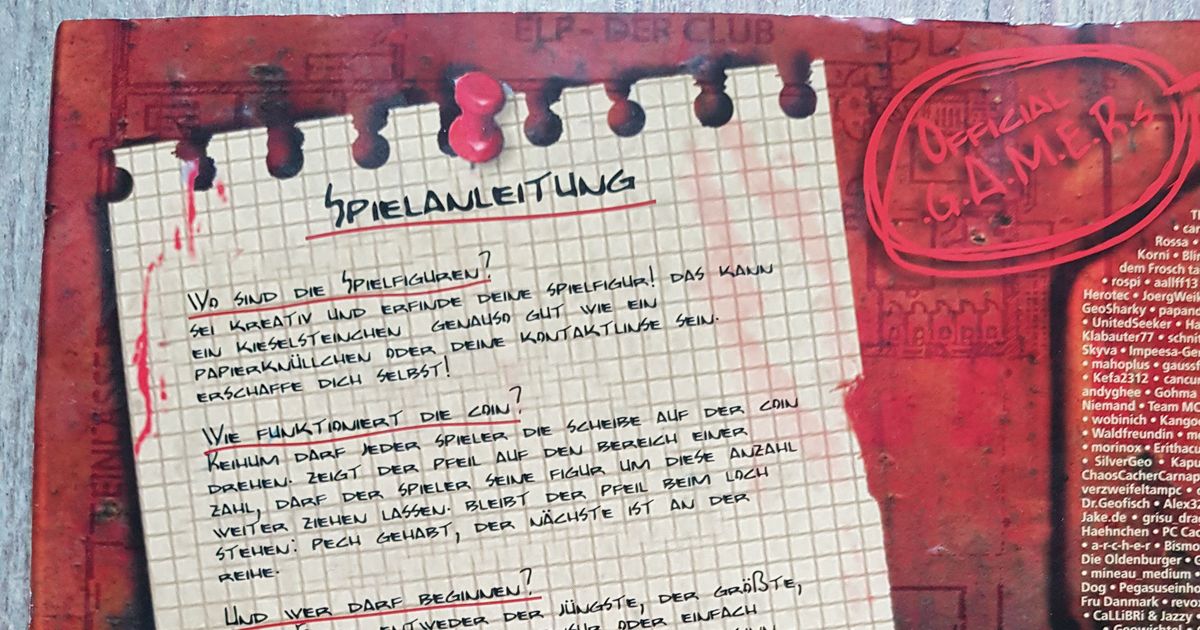 ELP - DER CLUB
SPIELANLEITUNG
WO SIND DIE SPIELFIGUREN?
SEI KREATIV UND ERFINDE DEINE SPIELFIGUR! DAS KANN
EIN KIESELSTEINCHEN GENAUSO GUT WIE EIN
PAPIERKNÜLLCHEN ODER DEINE KONTAKTLINSE SEIN.
ERSCHAFFE DICH SELBST!
WIE FUNKTIONIERT DIE COIN?
REIHUM DARF JEDER SPIELER DIE SCHEIBE AUF DER COIN
DREHEN. ZEIGT DER PFEIL AUF DEN BEREICH EINER
ZAHL, DARF DER SPIELER SEINE FIGUR UM DIESE ANZAHL
WEITER ZIEHEN LASSEN. BLEIBT DER PFEIL BEIM LOCH
STEHEN: PECH GEHABT, DER NÄCHSTE IST AN DER
REIHE.
UND WER DARF BEGINNEN?
ENTWEDER DER JÜNGSTE, DER GRÖßTE,
ODER EINFACH
OFFICIAL
.G.A.M.E.R.s
Rossa •
Korni •
dem Frosch
• rospi • aallff13
Herotec •
GeoSharky •
• UnitedSeeker •
Klabauter77 •
Skyva •
• mahoplus •
• Kefa2312 •
andyghee • Gohma
Niemand • Team
• wobinich •
• Waldfreundin •
• morinox •
• SilverGeo •
verzweifeltampc •
Dr.Geofisch •
Jake.de •
Haehnchen •
• a-r-c-h-e-r •
Die Oldenburger •
• mineau_medium •
Dog •
Fru Danmark •
• CaLLiBRi & Jazzy